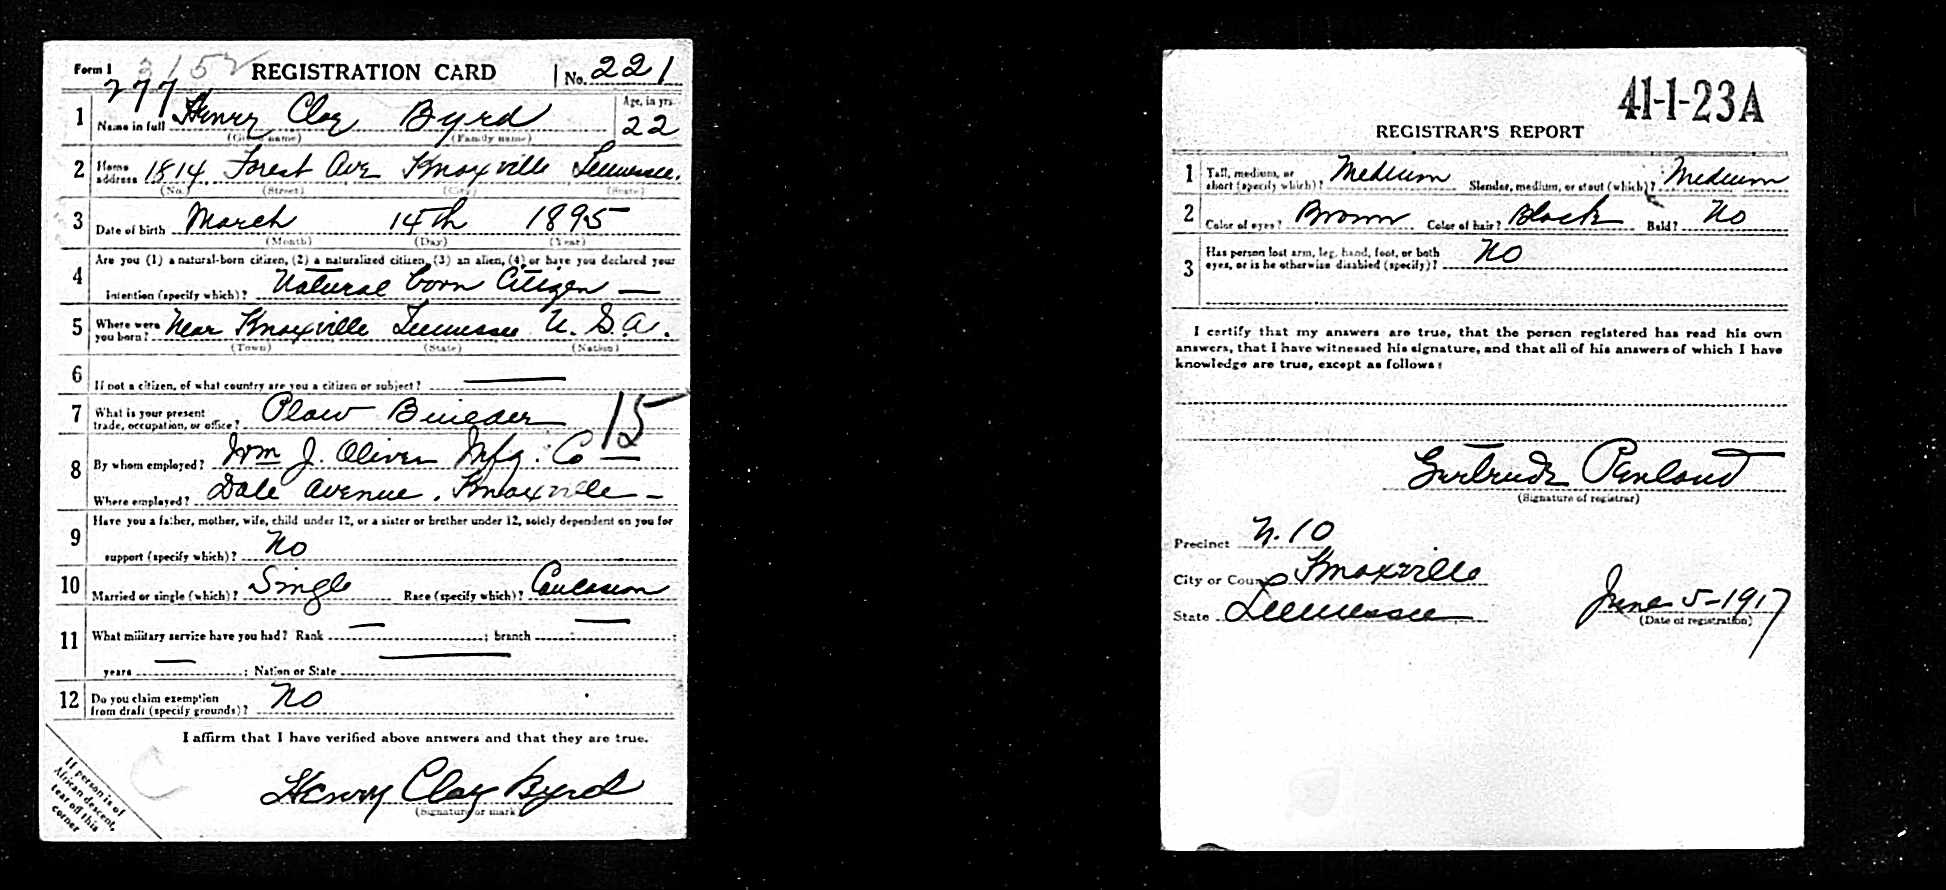 Form 1 3152 REGISTRATION CARD No. 221
277
1 Name in full Henry Clay Byrd Age, in yrs. 22
(Given name) (Family name)
2 Home address 1814 Forest Ave Knoxville Tennessee.
(No.) (Street) (City) (State)
3 Date of birth March 14th 1895
(Month) (Day) (Year)
Are you (1) a natural-born citizen, (2) a naturalized citizen, (3) an alien, (4) or have you declared your
4 intention (specify which)? Natural born Citizen —
5 Where were you born? Near Knoxville Tennessee U. S. A.
(Town) (State) (Nation)
6 If not a citizen, of what country are you a citizen or subject? —
7 What is your present trade, occupation, or office? Plow Builder 15
8 By whom employed? Wm J. Oliver Mfg. Co
Where employed? Dale Avenue. Knoxville —
Have you a father, mother, wife, child under 12, or a sister or brother under 12, solely dependent on you for
9 support (specify which)? No
10 Married or single (which)? Single Race (specify which)? Caucasion
11 What military service have you had? Rank — ; branch — ;
years — ; Nation or State —
12 Do you claim exemption from draft (specify grounds)? No
I affirm that I have verified above answers and that they are true.
Henry Clay Byrd
(Signature or mark)
If person is of
African descent,
tear off this
corner
C
41-1-23A
REGISTRAR'S REPORT
1 Tall, medium, or short (specify which)? Medium Slender, medium, or stout (which)? Medium
2 Color of eyes? Brown Color of hair? Black Bald? No
3 Has person lost arm, leg, hand, foot, or both eyes, or is he otherwise disabled (specify)? No
I certify that my answers are true, that the person registered has read his own
answers, that I have witnessed his signature, and that all of his answers of which I have
knowledge are true, except as follows:
Gertrude Penland
(Signature of registrar)
Precinct N. 10
City or County Knoxville
State Tennessee June 5-1917
(Date of registration)